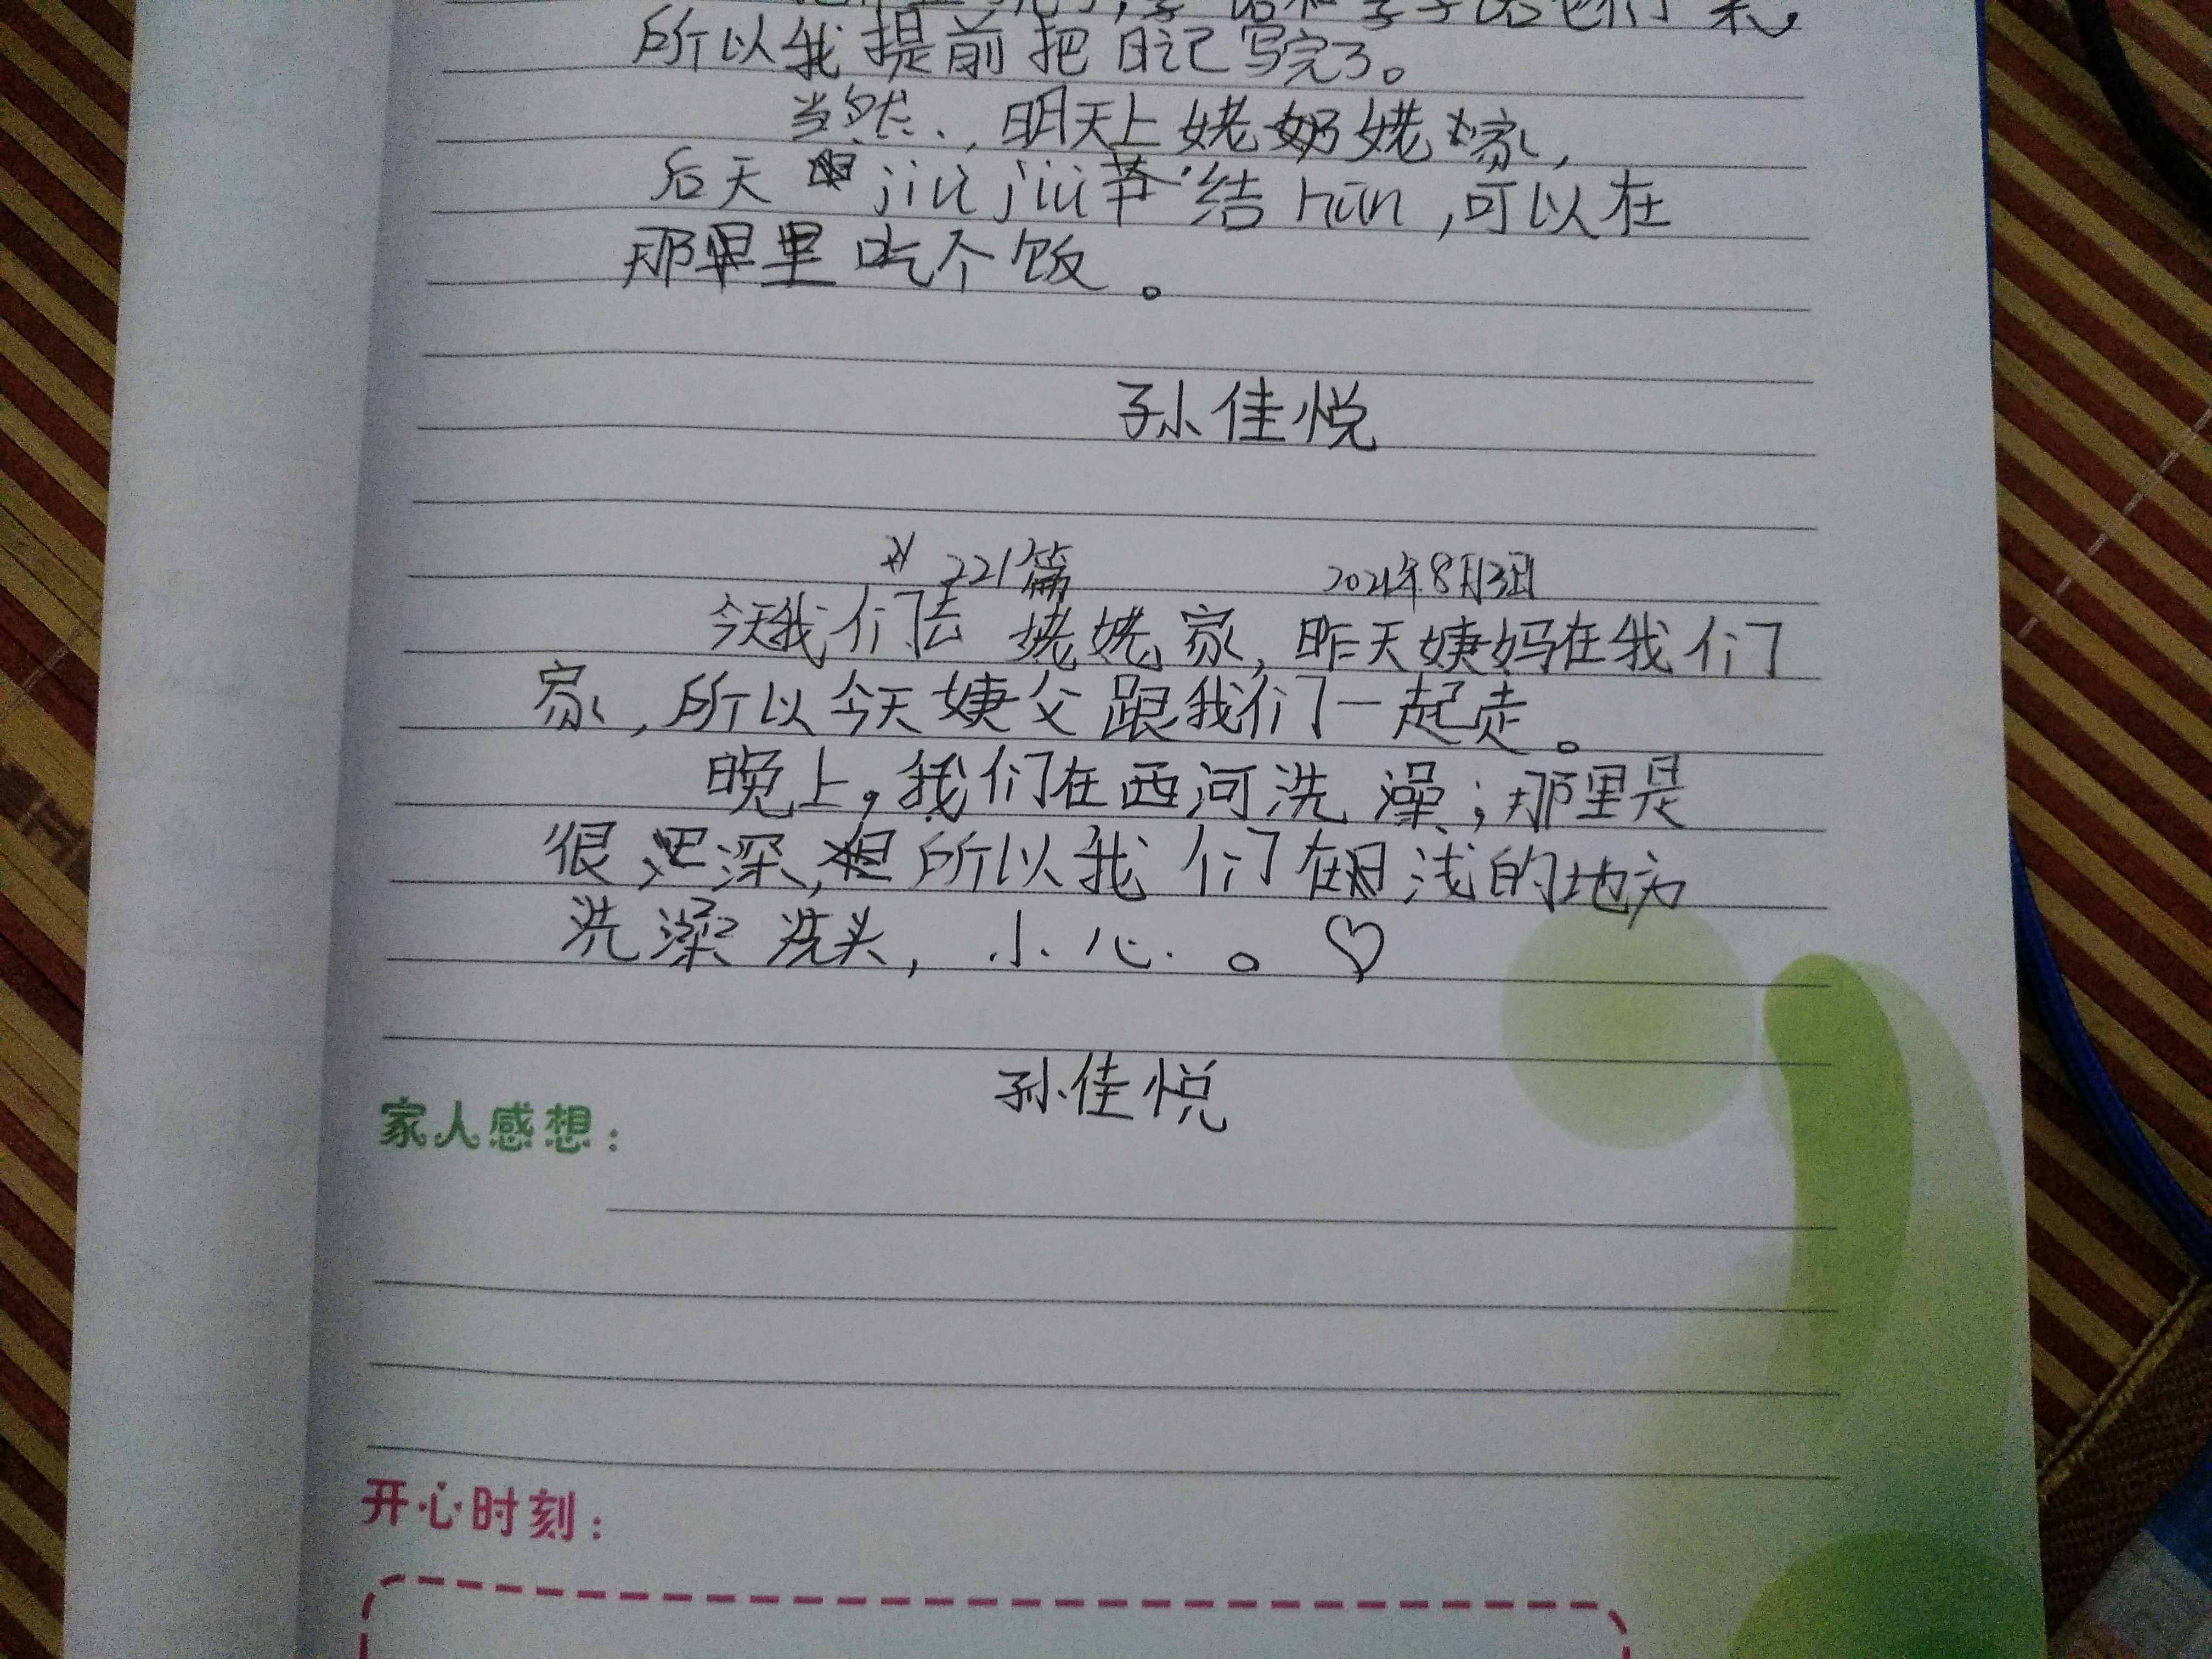 所以我提前把日记写完了。
当然,明天上姥姥家,
后天jiù jiu节结hūn,可以在
那里吃个饭。
孙佳悦
221篇 2021年8月3日
今天我们去姥姥家,昨天姨妈在我们
家,所以今天姨父跟我们一起走。
晚上,我们在西河洗澡;那里是
很深,所以我们在浅的地方
洗澡洗头,小心。♡
孙佳悦
家人感想:
开心时刻: